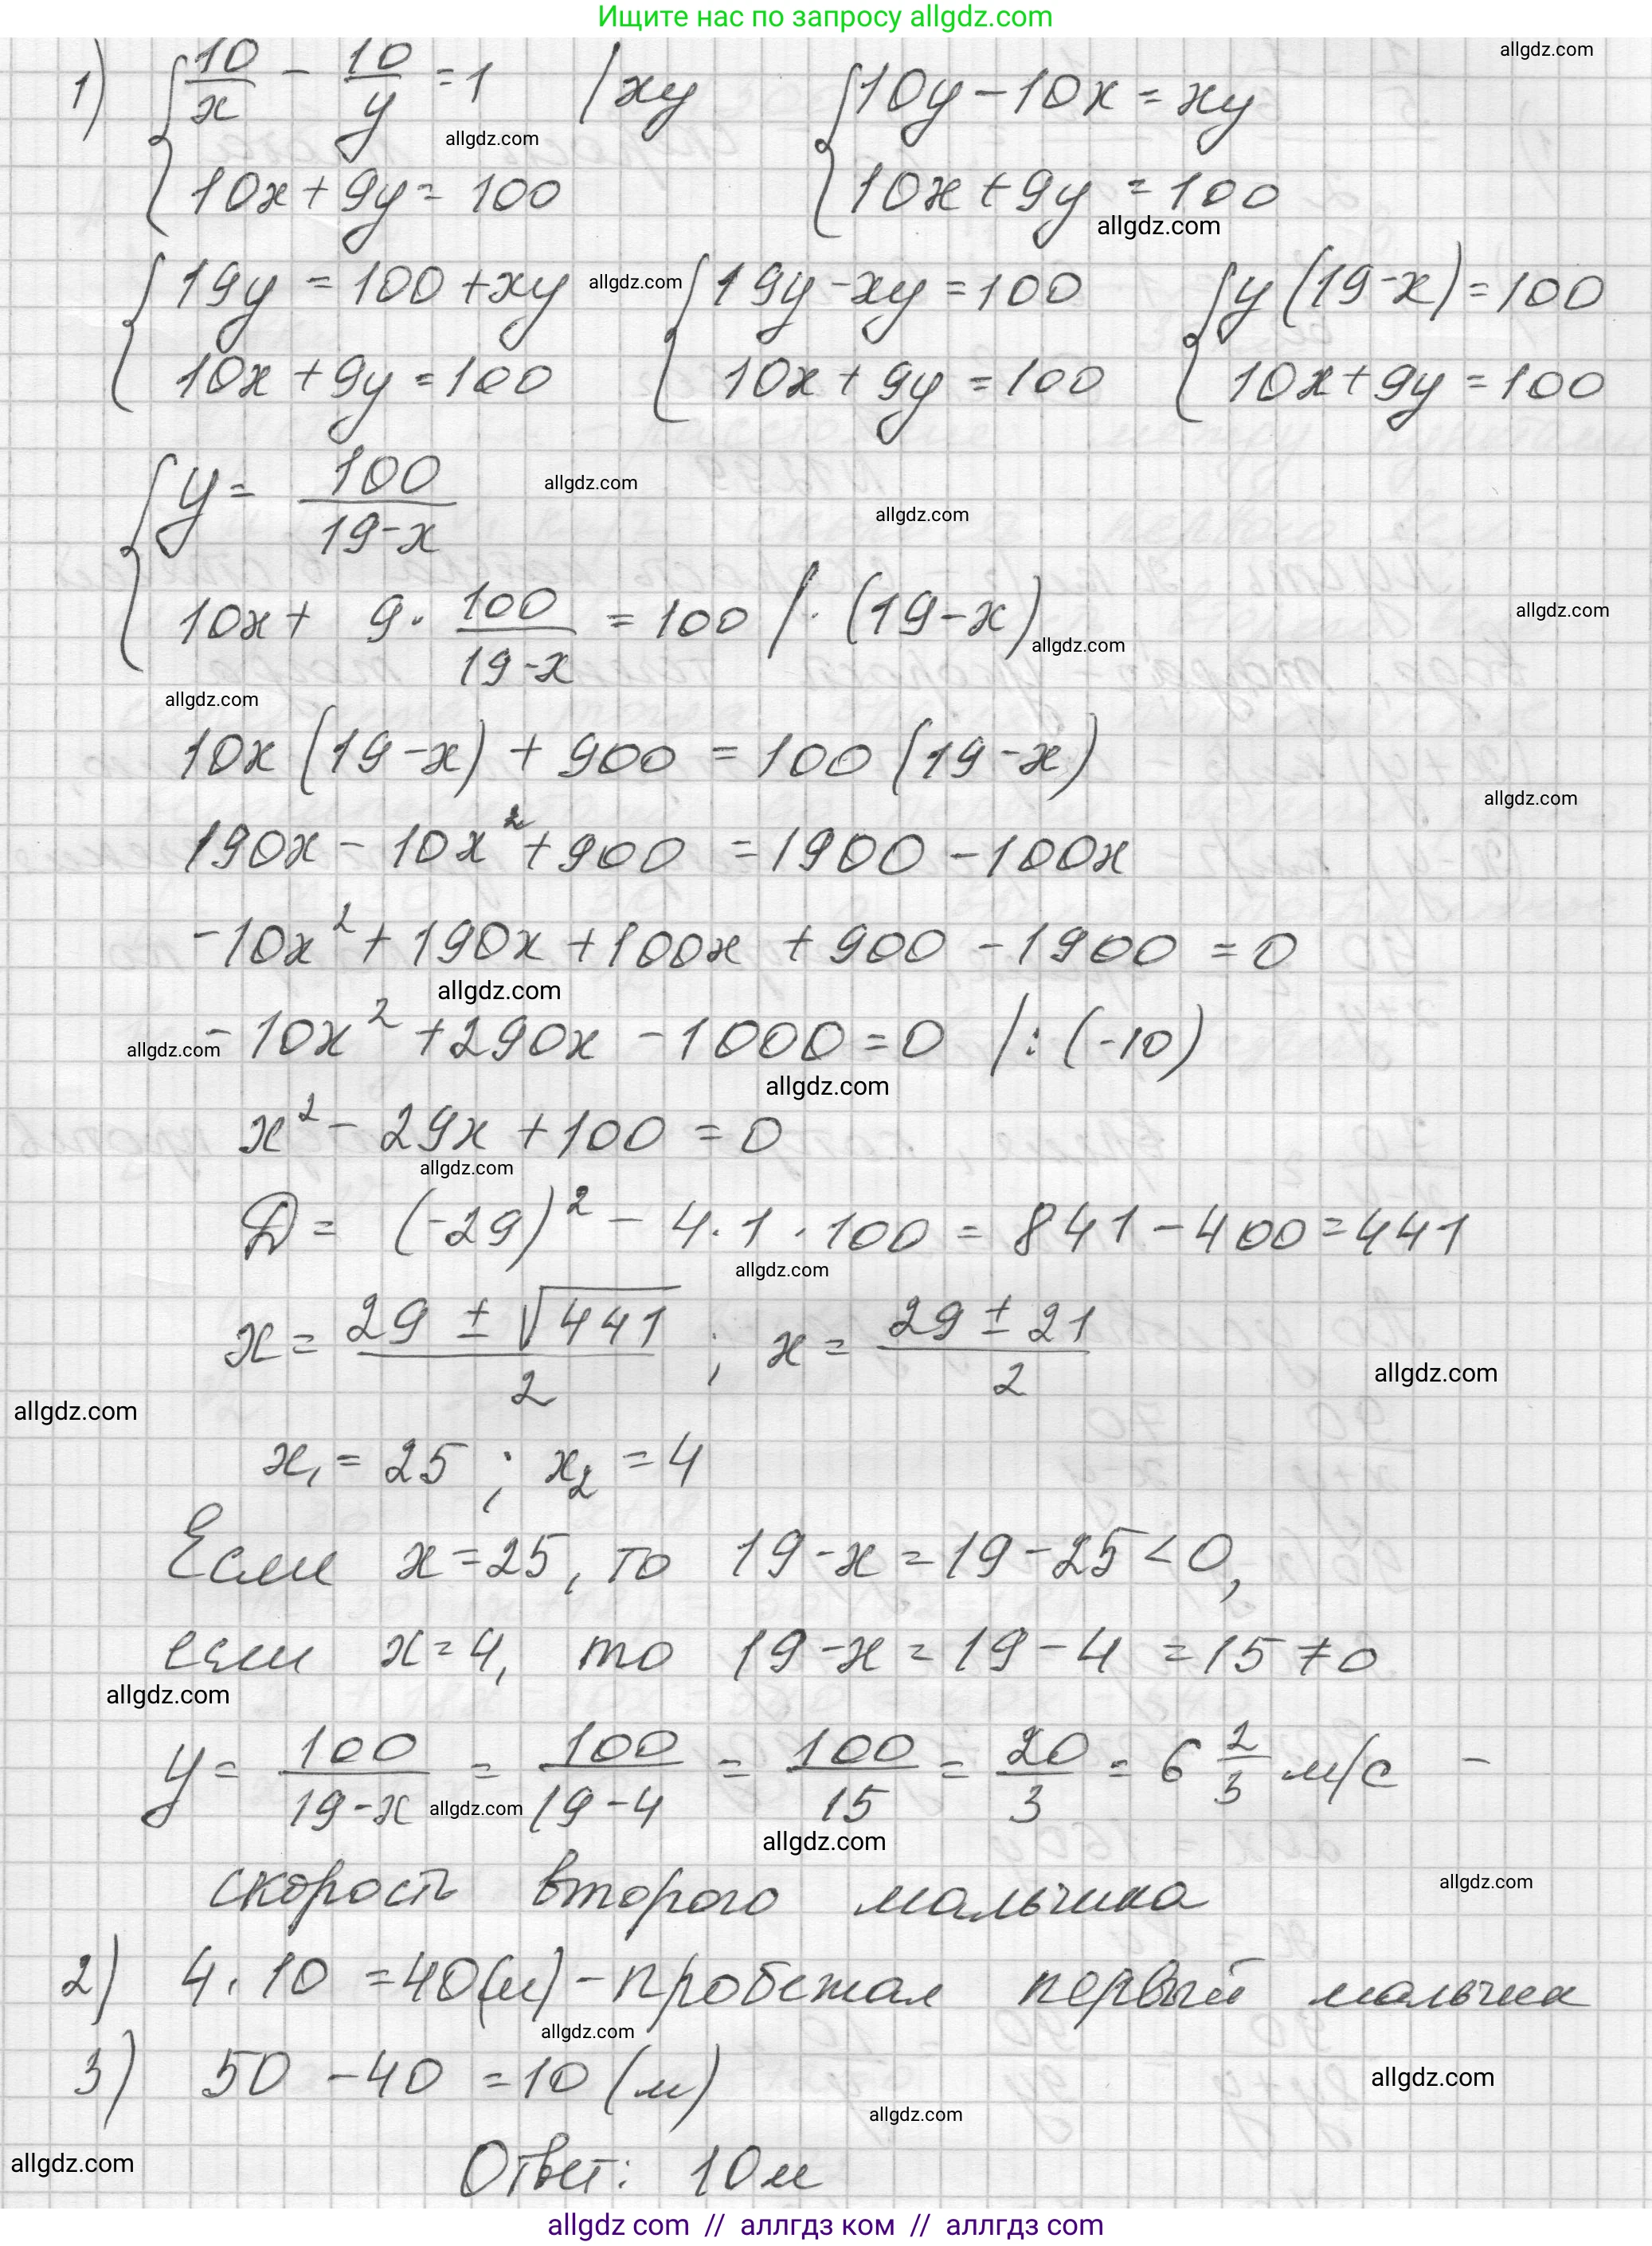 Ищите нас по запросу allgdz.com
allgdz.com
1) { 10/x - 10/y = 1 / xy { 10y - 10x = xy
allgdz.com
10x + 9y = 100 10x + 9y = 100
allgdz.com
{ 19y = 100 + xy allgdz.com { 19y - xy = 100 { y (19 - x) = 100
10x + 9y = 100 10x + 9y = 100 10x + 9y = 100
{ y = 100/(19-x) allgdz.com
allgdz.com
10x + 9 · 100/(19-x) = 100 / · (19 - x) allgdz.com
allgdz.com
allgdz.com
10x (19 - x) + 900 = 100 (19 - x)
allgdz.com
190x - 10x² + 900 = 1900 - 100x
-10x² + 190x + 100x + 900 - 1900 = 0
allgdz.com
allgdz.com -10x² + 290x - 1000 = 0 /: (-10)
allgdz.com
x² - 29x + 100 = 0
allgdz.com
D = (-29)² - 4 · 1 · 100 = 841 - 400 = 441
allgdz.com
x = (29 ± √441)/2 ; x = (29 ± 21)/2
allgdz.com
allgdz.com
x₁ = 25 ; x₂ = 4
Если x = 25, то 19 - x = 19 - 25 < 0,
если x = 4, то 19 - x = 19 - 4 = 15 ≠ 0
allgdz.com
y = 100/(19-x) = 100/(19-4) = 100/15 = 20/3 = 6 2/3 м/с -
allgdz.com
allgdz.com
скорость второго мальчика
allgdz.com
2) 4 · 10 = 40(м) - пробежал первый мальчик
allgdz.com
3) 50 - 40 = 10 (м)
allgdz.com
allgdz.com
allgdz.com
Ответ: 10 м
allgdz com // аллгдз ком // аллгдз com